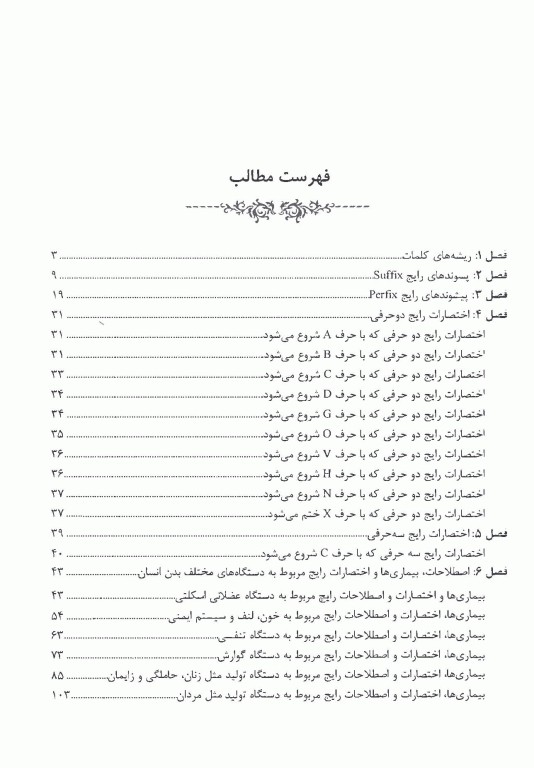 فهرست مطالب
فصل ۱: ریشه‌های کلمات ۳
فصل ۲: پسوندهای رایج Suffix ۹
فصل ۳: پیشوندهای رایج Perfix ۱۹
فصل ۴: اختصارات رایج دوحرفی ۳۱
اختصارات رایج دو حرفی که با حرف A شروع می‌شود ۳۱
اختصارات رایج دو حرفی که با حرف B شروع می‌شود ۳۱
اختصارات رایج دو حرفی که با حرف C شروع می‌شود ۳۳
اختصارات رایج دو حرفی که با حرف D شروع می‌شود ۳۴
اختصارات رایج دو حرفی که با حرف G شروع می‌شود ۳۴
اختصارات رایج دو حرفی که با حرف O شروع می‌شود ۳۵
اختصارات رایج دو حرفی که با حرف V شروع می‌شود ۳۶
اختصارات رایج دو حرفی که با حرف H شروع می‌شود ۳۶
اختصارات رایج دو حرفی که با حرف N شروع می‌شود ۳۷
اختصارات رایج دو حرفی که با حرف X ختم می‌شود ۳۷
فصل ۵: اختصارات رایج سه‌حرفی ۳۹
اختصارات رایج سه حرفی که با حرف C شروع می‌شود ۴۰
فصل ۶: اصطلاحات، بیماری‌ها و اختصارات رایج مربوط به دستگاه‌های مختلف بدن انسان ۴۳
بیماری‌ها و اختصارات و اصطلاحات رایج مربوط به دستگاه عضلانی اسکلتی ۴۳
بیماری‌ها، اختصارات و اصطلاحات رایج مربوط به خون، لنف و سیستم ایمنی ۵۴
بیماری‌ها، اختصارات و اصطلاحات رایج مربوط به دستگاه تنفسی ۶۳
بیماری‌ها، اختصارات و اصطلاحات رایج مربوط به دستگاه گوارش ۷۳
بیماری‌ها، اختصارات و اصطلاحات رایج مربوط به دستگاه تولید مثل زنان، حاملگی و زایمان ۸۵
بیماری‌ها، اختصارات و اصطلاحات رایج مربوط به دستگاه تولید مثل مردان ۱۰۳